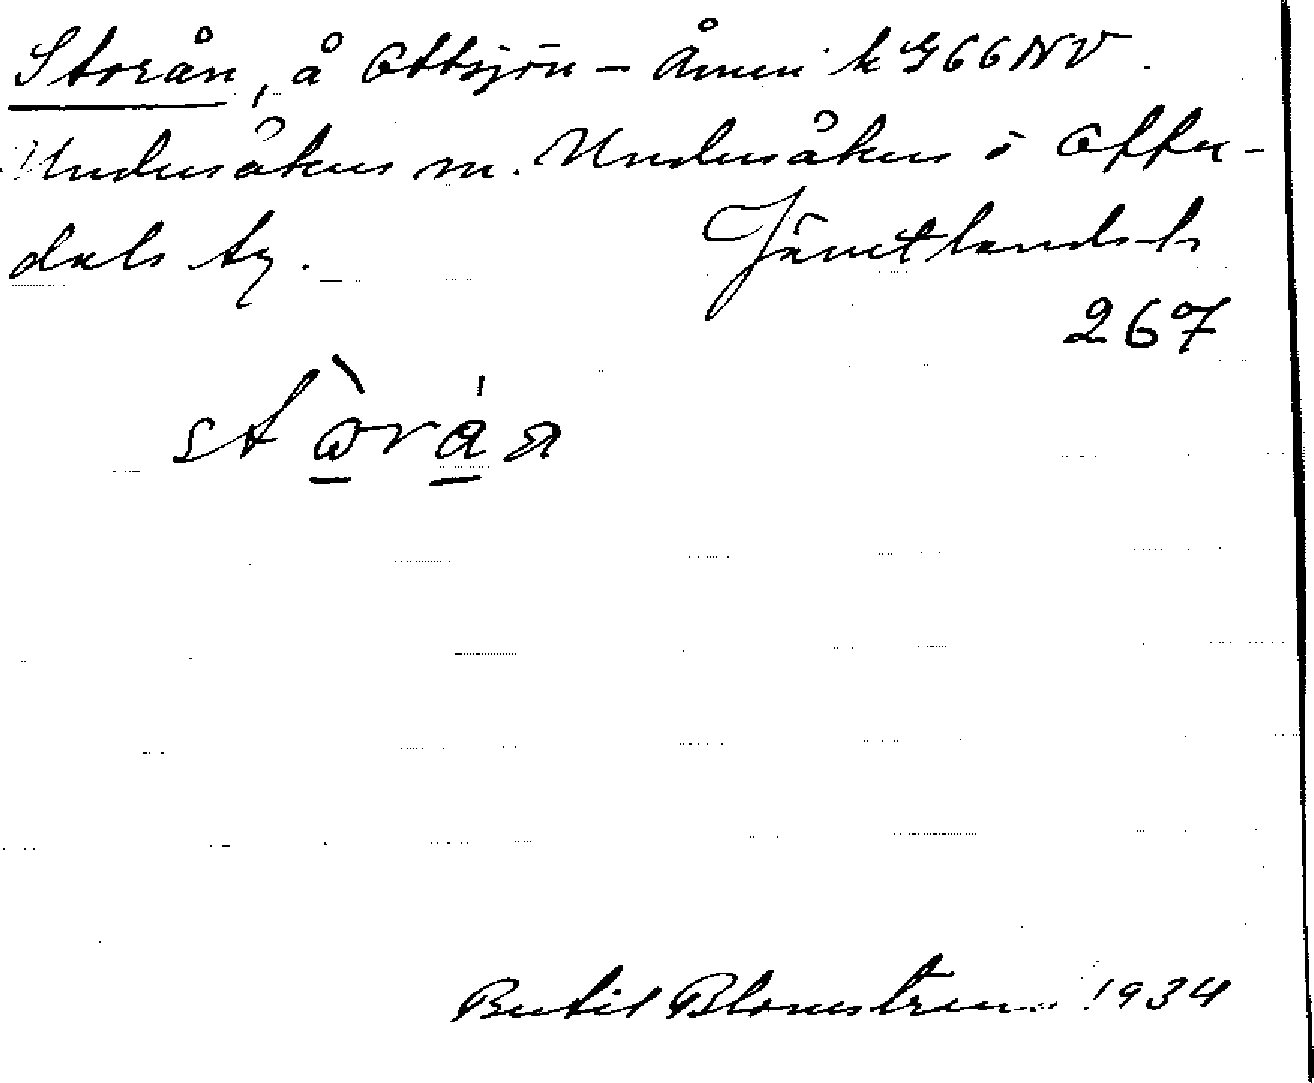 Storån, å Ottsjön - Ånnen k G66NV.
Undersåkers sn. Undersåkers o Offer-
dals tg. Jämtlands l.
267
stòráṇ
Bertil Blomstrem 1934